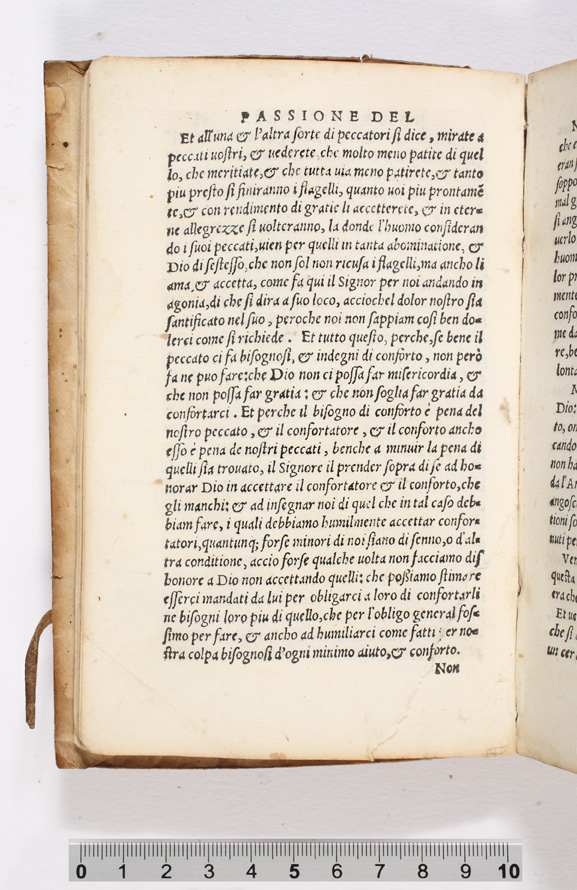 PASSIONE DEL
Et all'una & l'altra sorte di peccatori si dice, mirate a
peccati uostri, & uederete che molto meno patite di quel
lo, che meritiate, & che tutta uia meno patirete, & tanto
piu presto si finiranno i flagelli, quanto uoi piu prontamẽ
te, & con rendimento di gratie li accetterete, & in eter=
ne allegrezze si uolteranno, la donde l'huomo consideran
do i suoi peccati, uien per quelli in tanta abominatione, &
Dio di sestesso, che non sol non ricusa i flagelli, ma ancho li
ama, & accetta, come fa qui il Signor per noi andando in
agonia, di che si dira a suo loco, acciochel dolor nostro sia
santificato nel suo, peroche noi non sappiam cosi ben do=
lerci come si richiede. Et tutto questo, perche, se bene il
peccato ci fa bisognosi, & indegni di conforto, non però
fa ne puo fare: che Dio non ci possa far misericordia, &
che non possa far gratia: & che non soglia far gratia da
confortarci. Et perche il bisogno di conforto è pena del
nostro peccato, & il confortatore, & il conforto ancho
esso è pena de nostri peccati, benche a minuir la pena di
quelli sia trouato, il Signore il prender sopra di se ad ho=
norar Dio in accettare il confortatore & il conforto, che
gli manchi: & ad insegnar noi di quel che in tal caso deb=
biam fare, i quali debbiamo humilmente accettar confor=
tatori, quantunq; forse minori di noi siano di senno, o d'al=
tra conditione, accio forse qualche uolta non facciamo dis
honore a Dio non accettando quelli: che possiamo stimare
esserci mandati da lui per obligarci a loro di confortarli
ne bisogni loro piu di quello, che per l'obligo general fos=
simo per fare, & ancho ad humiliarci come fatti per no=
stra colpa bisognosi d'ogni minimo aiuto, & conforto.
Non
0 1 2 3 4 5 6 7 8 9 10